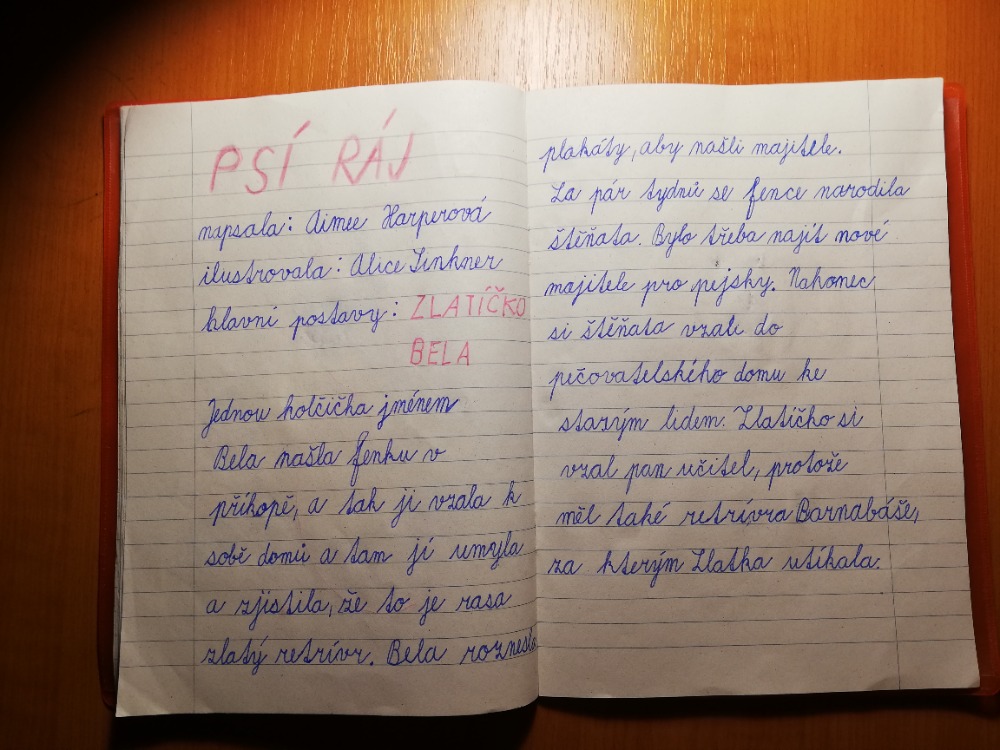 PSÍ RÁJ
napsala: Aimee Harperová
ilustrovala: Alice Tinkner
hlavní postavy: ZLATÍČKO
BELA
Jednou holčička jménem
Bela našla fenku v
příkopě, a tak ji vzala k
sobě domů a tam jí umyla
a zjistila, že to je rasa
zlatý retrívr. Bela roznesla
plakáty, aby našli majitele.
Za pár tydnů se fence narodila
štěňata. Bylo třeba najít nové
majitele pro pejsky. Nakonec
si štěňata vzali do
pečovatelského domu ke
starým lidem. Zlatíčko si
vzal pan učitel, protože
měl také retrívra Barnabáše,
za kterým Zlatka utíkala.